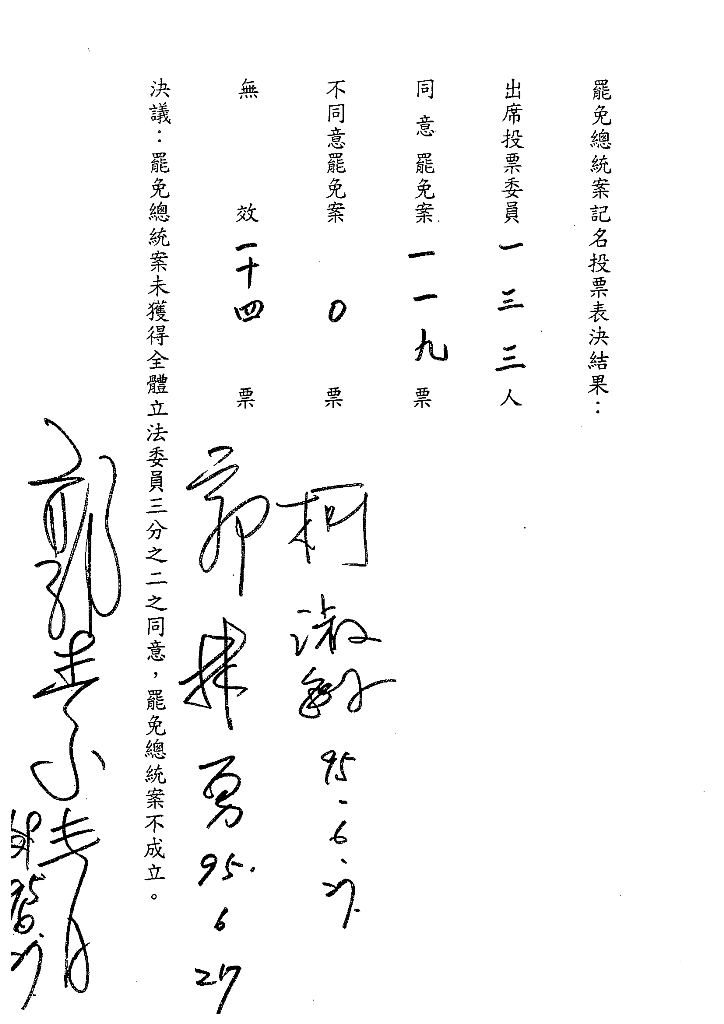 罷免總統案記名投票表決結果：
出席投票委員一三三人
同意罷免案一一九票
不同意罷免案0票
無效一十四票
決議：罷免總統案未獲得全體立法委員三分之二之同意，罷免總統案不成立。
柯淑敏 95.6.27.
郭林勇 95.6 27
郭素春